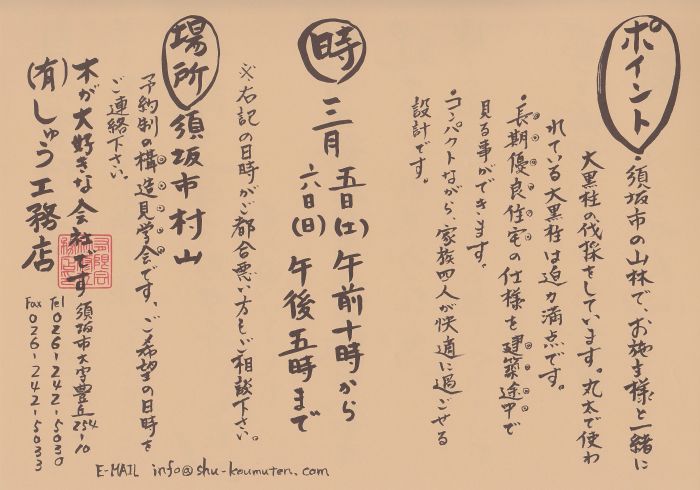 ポイント
・須坂市の山林で、お施主様と一緒に
大黒柱の伐採をしています。丸太で使わ
れている大黒柱は迫力満点です。
・長期優良住宅の仕様を建築途中で
見る事ができます。
・コンパクトながら、家族四人が快適に過ごせる
設計です。
時
三月 五日(土) 午前十時から
六日(日) 午後五時まで
※右記の日時がご都合悪い方もご相談下さい。
場所 須坂市村山
予約制の構造見学会です、ご希望の日時を
ご連絡下さい。
木が大好きな会社です
(有)しゅう工務店
須坂市大字豊丘254-10
Tel 026-242-5030
Fax 026-242-5033
E-MAIL info@shu-koumuten.com